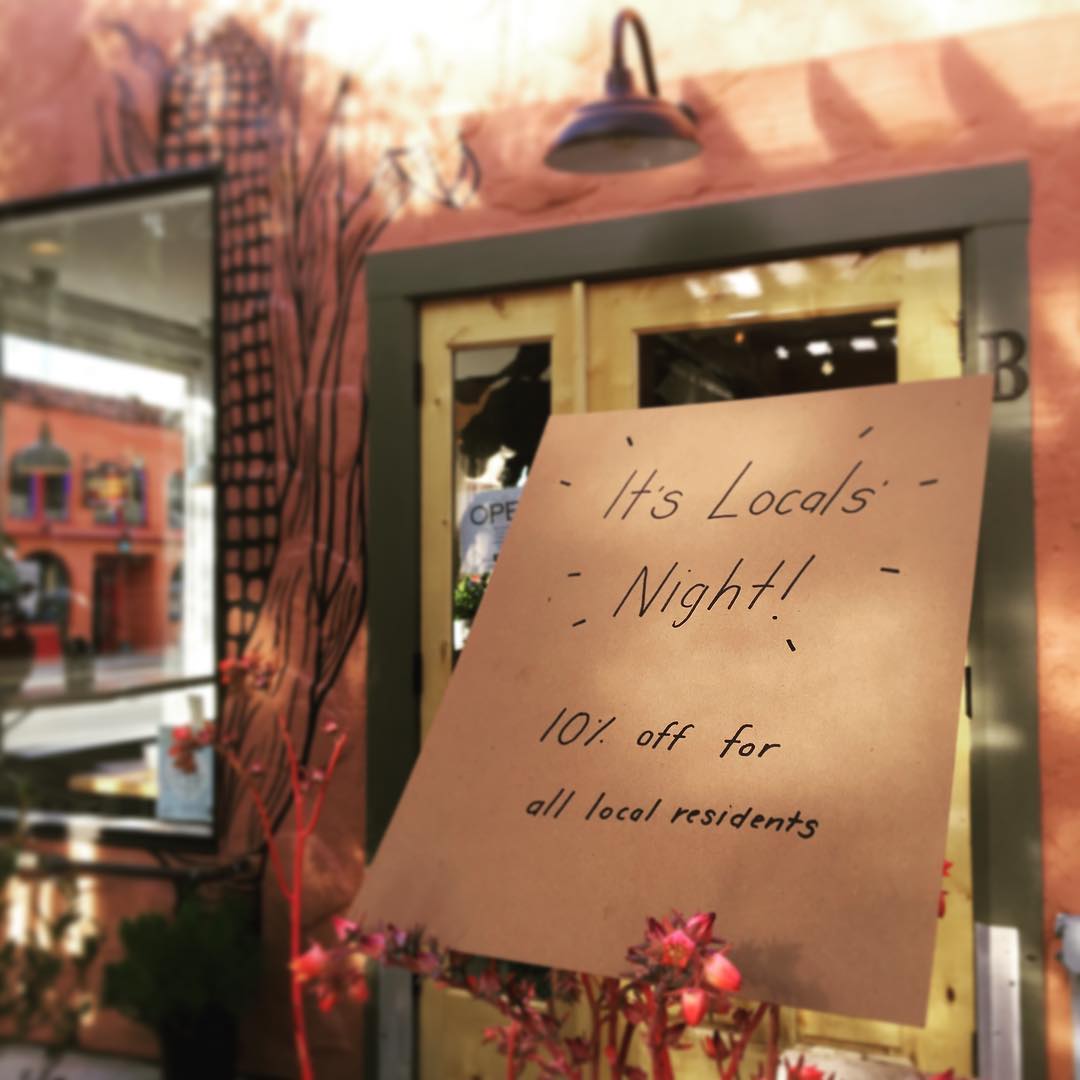 It's Locals'
Night!
10% off for
all local residents
OPE
B